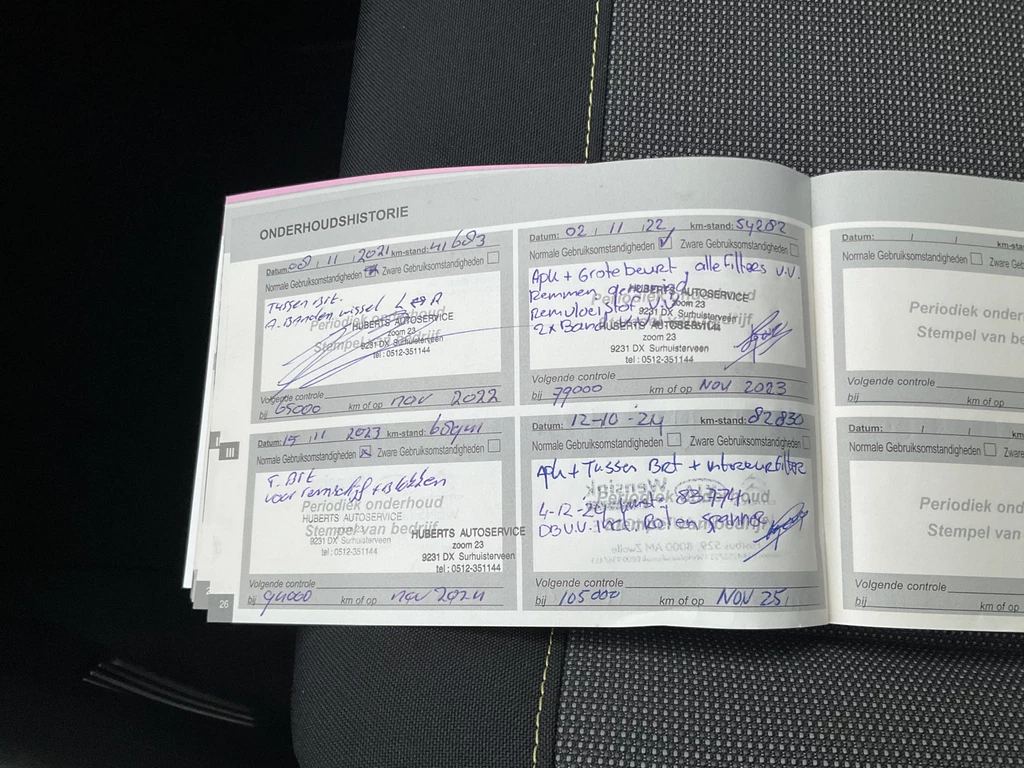 ONDERHOUDSHISTORIE
Datum: 08 / 11 / 2021 km-stand: 41683
Normale Gebruiksomstandigheden Zware Gebruiksomstandigheden
Tussen Brt.
A. Banden wissel L R
Periodiek onderhoud
Stempel van bedrijf
HUBERTS AUTOSERVICE
zoom 23
9231 DX Surhuisterveen
tel: 0512-351144
Volgende controle
bij 65000 km of op nov 2022
Datum: 02 / 11 / 22 km-stand: 54282
Normale Gebruiksomstandigheden Zware Gebruiksomstandigheden
Apk + Grote beurt, alle filters v.v.
Remmen gereinigd
Remvloeistof v.v.
2x Band
Periodiek onderhoud
Stempel van bedrijf
HUBERTS AUTOSERVICE
zoom 23
9231 DX Surhuisterveen
HUBERTS AUTOSERVICE
zoom 23
9231 DX Surhuisterveen
tel: 0512-351144
Volgende controle
bij 79000 km of op NOV 2023
Datum: 15 / 11 / 2023 km-stand:
Normale Gebruiksomstandigheden Zware Gebruiksomstandigheden
T. Brt
voor remschijf + blokken
Periodiek onderhoud
Stempel van bedrijf
HUBERTS AUTOSERVICE
zoom 23
9231 DX Surhuisterveen
tel: 0512-351144
HUBERTS AUTOSERVICE
zoom 23
9231 DX Surhuisterveen
tel: 0512-351144
Volgende controle
bij 94000 km of op nov 2024
Datum: 12-10-24 km-stand: 82830
Normale Gebruiksomstandigheden Zware Gebruiksomstandigheden
Apk + Tussen Brt + interieurfilter
4-12-24 83774
Wensink
Periodiek onderhoud
8000 AM Zwolle
Volgende controle
bij 105000 km of op NOV 25
Datum: / / km-sta
Normale Gebruiksomstandigheden
Periodiek onder
Stempel van be
Volgende controle
bij km of
Datum: / / km-st
Normale Gebruiksomstandigheden
Periodiek onde
Stempel van be
Volgende controle
bij km of op
III
26